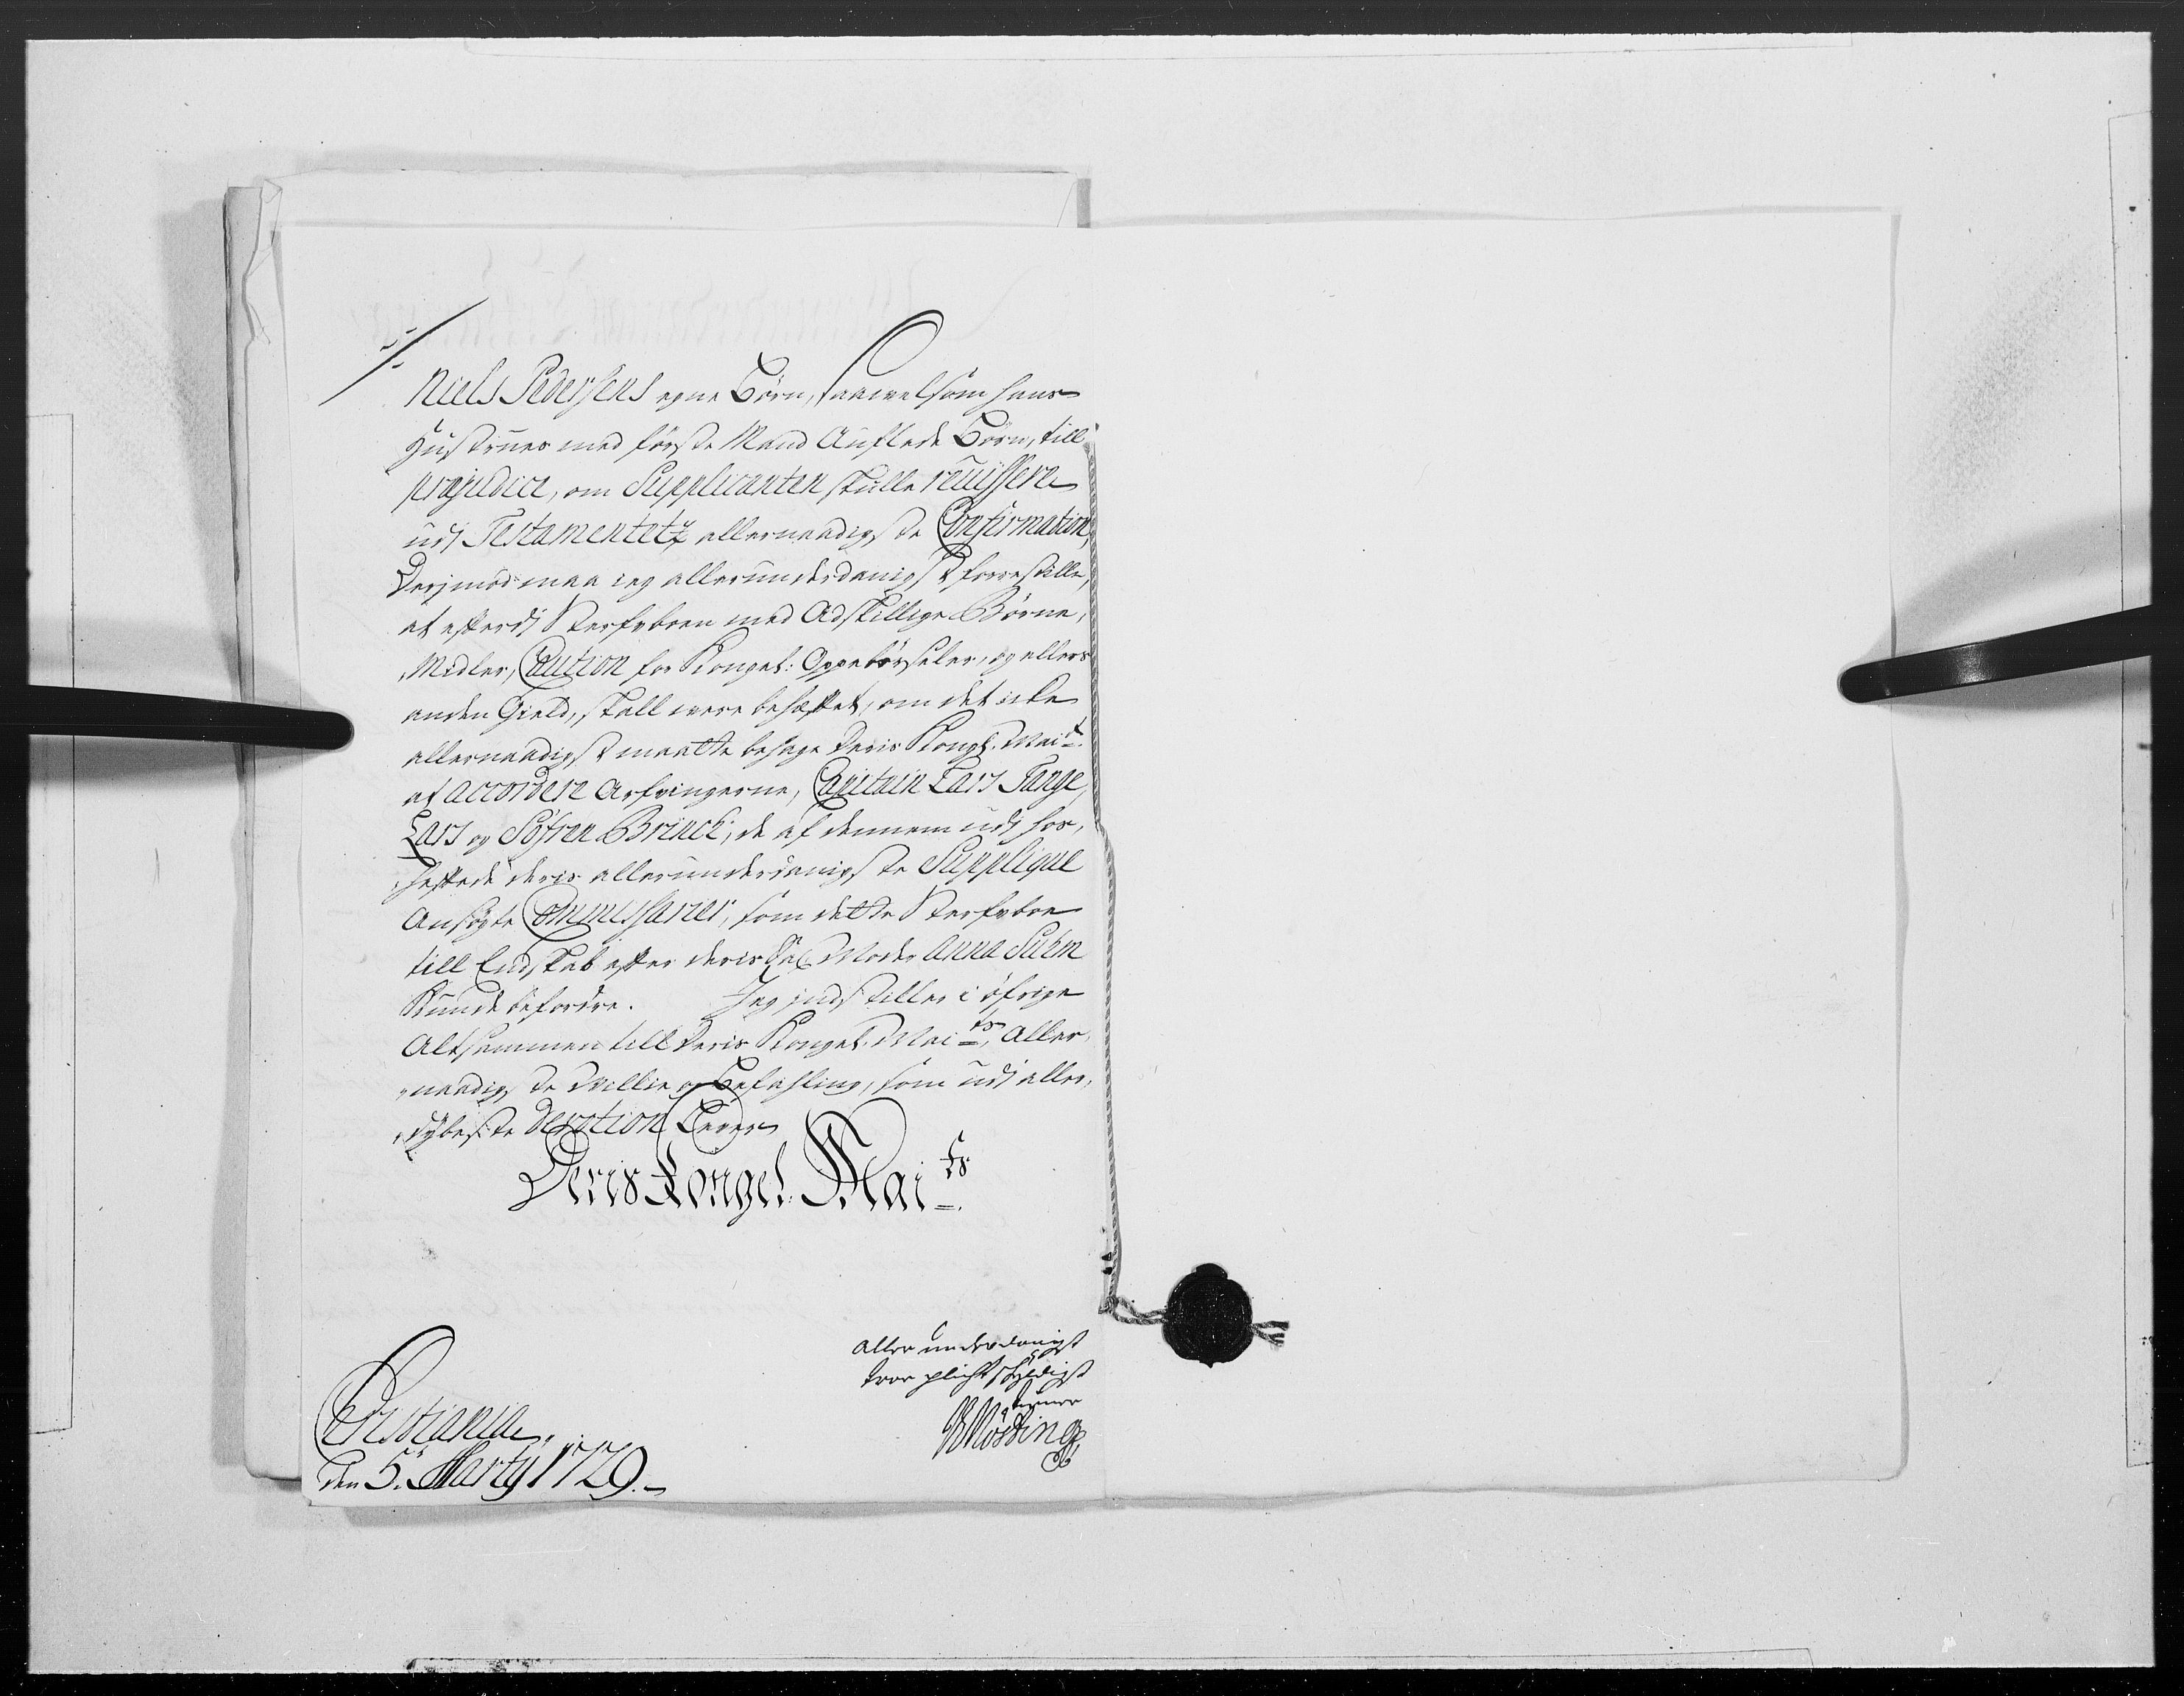 Niels Pedersens egne Børn, saavelsom hans
Hustrues med første Mand Auflede Børn, till
præjudice, om Supplicanten skulle reüissere
udj Testamentetz allernaadigste Confirmation,
Derjmod maa ieg allerunderdanigst forrestille,
at efterdj Sterfvboen med Adskillige Børne,
Midler, Caution for Kongel: Oppebørseler, og ellers
anden Gield, skall være behæftet, om det icke
allernaadigst maatte behage Deris Kongl. Mait.
at accordere Arfvingerne, Capitain Lars Tange,
Lars og Søfren Brinck, de af dennem udj hos,
hæftede deris allerunderdanigste Supplique
Ansøgte Commissarier, som dette Sterfvboe
till Endskab efter deris Sal. Moder Anna Suhm
Kunde befordre. Jeg indstiller i øfrige
Altsammen till Deris Kongel. Maits. Aller,
naadigste Villie og Befahling, som udj aller,
dybeste Devotion Lever
Deris Kongel. Maits.
Allerunderdanigst
troe pligtskyldigst
tiener
Christiania,
den 5. Martij 1729.